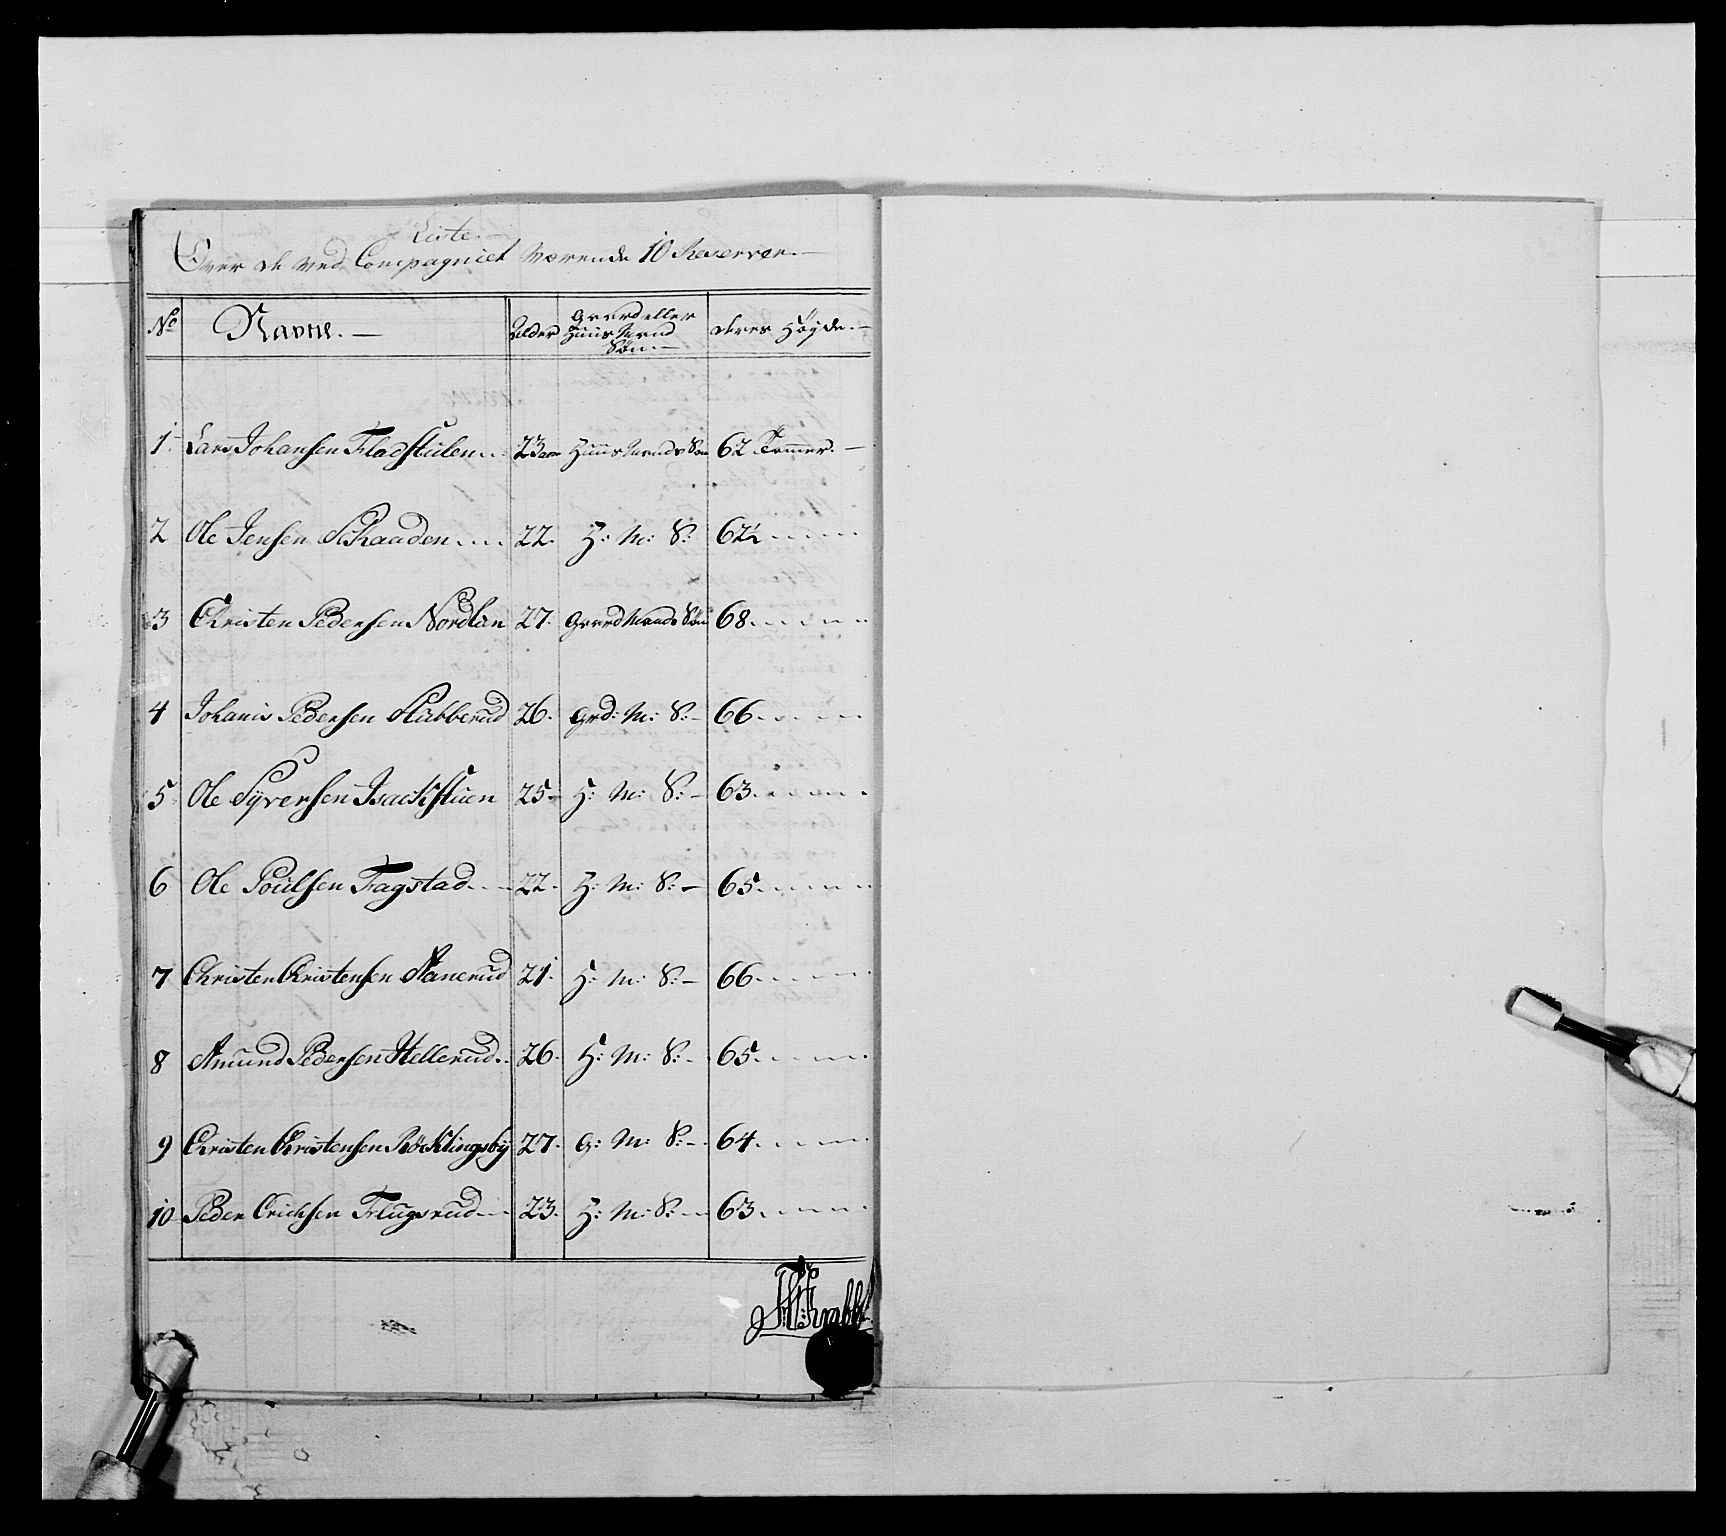 Liste.
Over de ved Compagniet værende 10 Reserver.
No Navne. Alder Gaard eller Huus Mand Søn deres Høyde.
1 Lars Johansen Fladstuen 23 aar Huus Mands Søn 62 Tommer.
2 Ole Jensen Skaaden 22. H: M: S: 62½
3 Christen Pedersen Nordlün 27. Gaard Mands Søn 68.
4 Johanis Pedersen Stubberud 26. Grd: M: S: 66.
5 Ole Syversen Isackstuen 25. H: M: S: 63.
6 Ole Poulsen Fragstad 22. H: M: S: 65.
7 Christen Christensen Stanerud 21. H: M: S: 66.
8 Amund Pedersen Hellerud 26. H: M: S: 65.
9 Christen Christensen Röcklingsby 27. G: M: S: 64.
10 Peder Erichsen Flugsrud 23. H: M: S: 63.